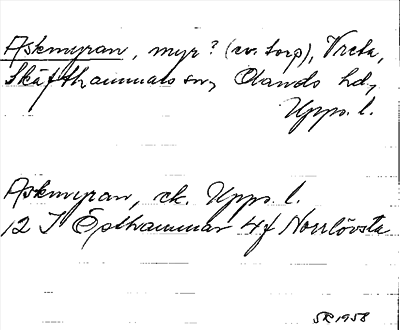 Askmyran, myr? (ev. torp), Vreta,
Skäfthammars sn, Olands hd,
Upps. l.
Askmyran, ek. Upps. l.
12 I Östhammar 4f Norrlövsta
SR 1958